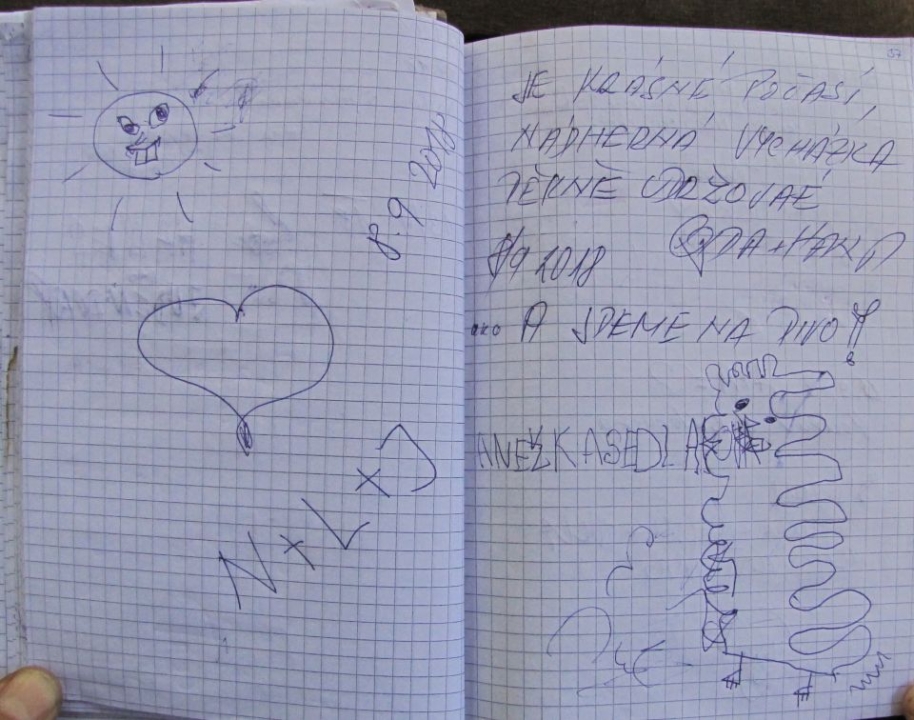 8.9 2018
N+L+J
JE KRÁSNÉ POČASÍ,
NÁDHERNÁ VYCHÁZKA
PĚKNĚ UDRŽOVAÉ
8/9 2018
A JDEME NA PIVO!
ANEŽKA SEDLÁKOVÁ